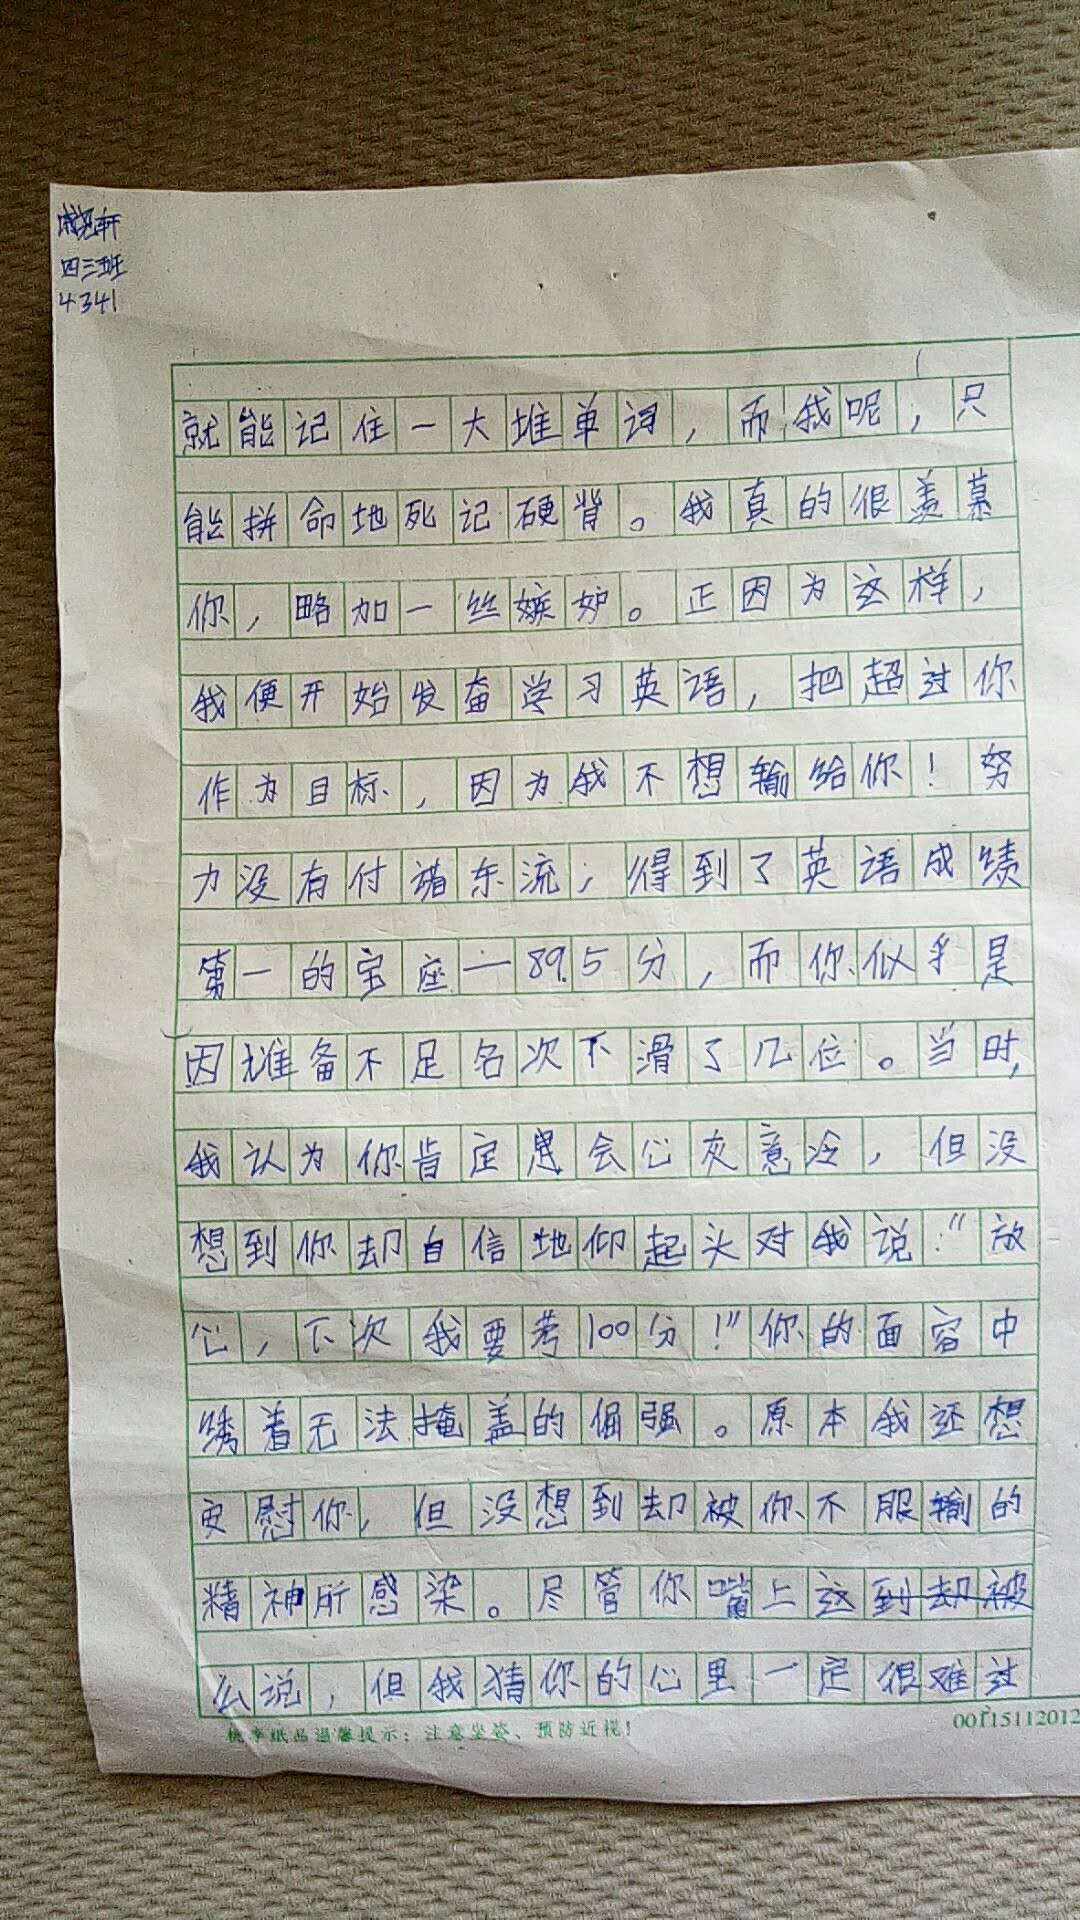 轩
四三班
4341
就能记住一大堆单词，而我呢，只
能拼命地死记硬背。我真的很羡慕
你，略加一丝嫉妒。正因为这样，
我便开始发奋学习英语，把超过你
作为目标，因为我不想输给你！努
力没有付诸东流，得到了英语成绩
第一的宝座一89.5分，而你似乎是
因准备不足名次下滑了几位。当时，
我认为你肯定思会心灰意冷，但没
想到你却自信地仰起头对我说："放
心，下次我要考100分！"你的面容中
绣着无法掩盖的倔强。原本我还想
安慰你，但没想到却被你不服输的
精神所感染。尽管你嘴上这到却被
么说，但我猜你的心里一定很难过
桃李纸品温馨提示：注意坐姿、预防近视！
00115112012